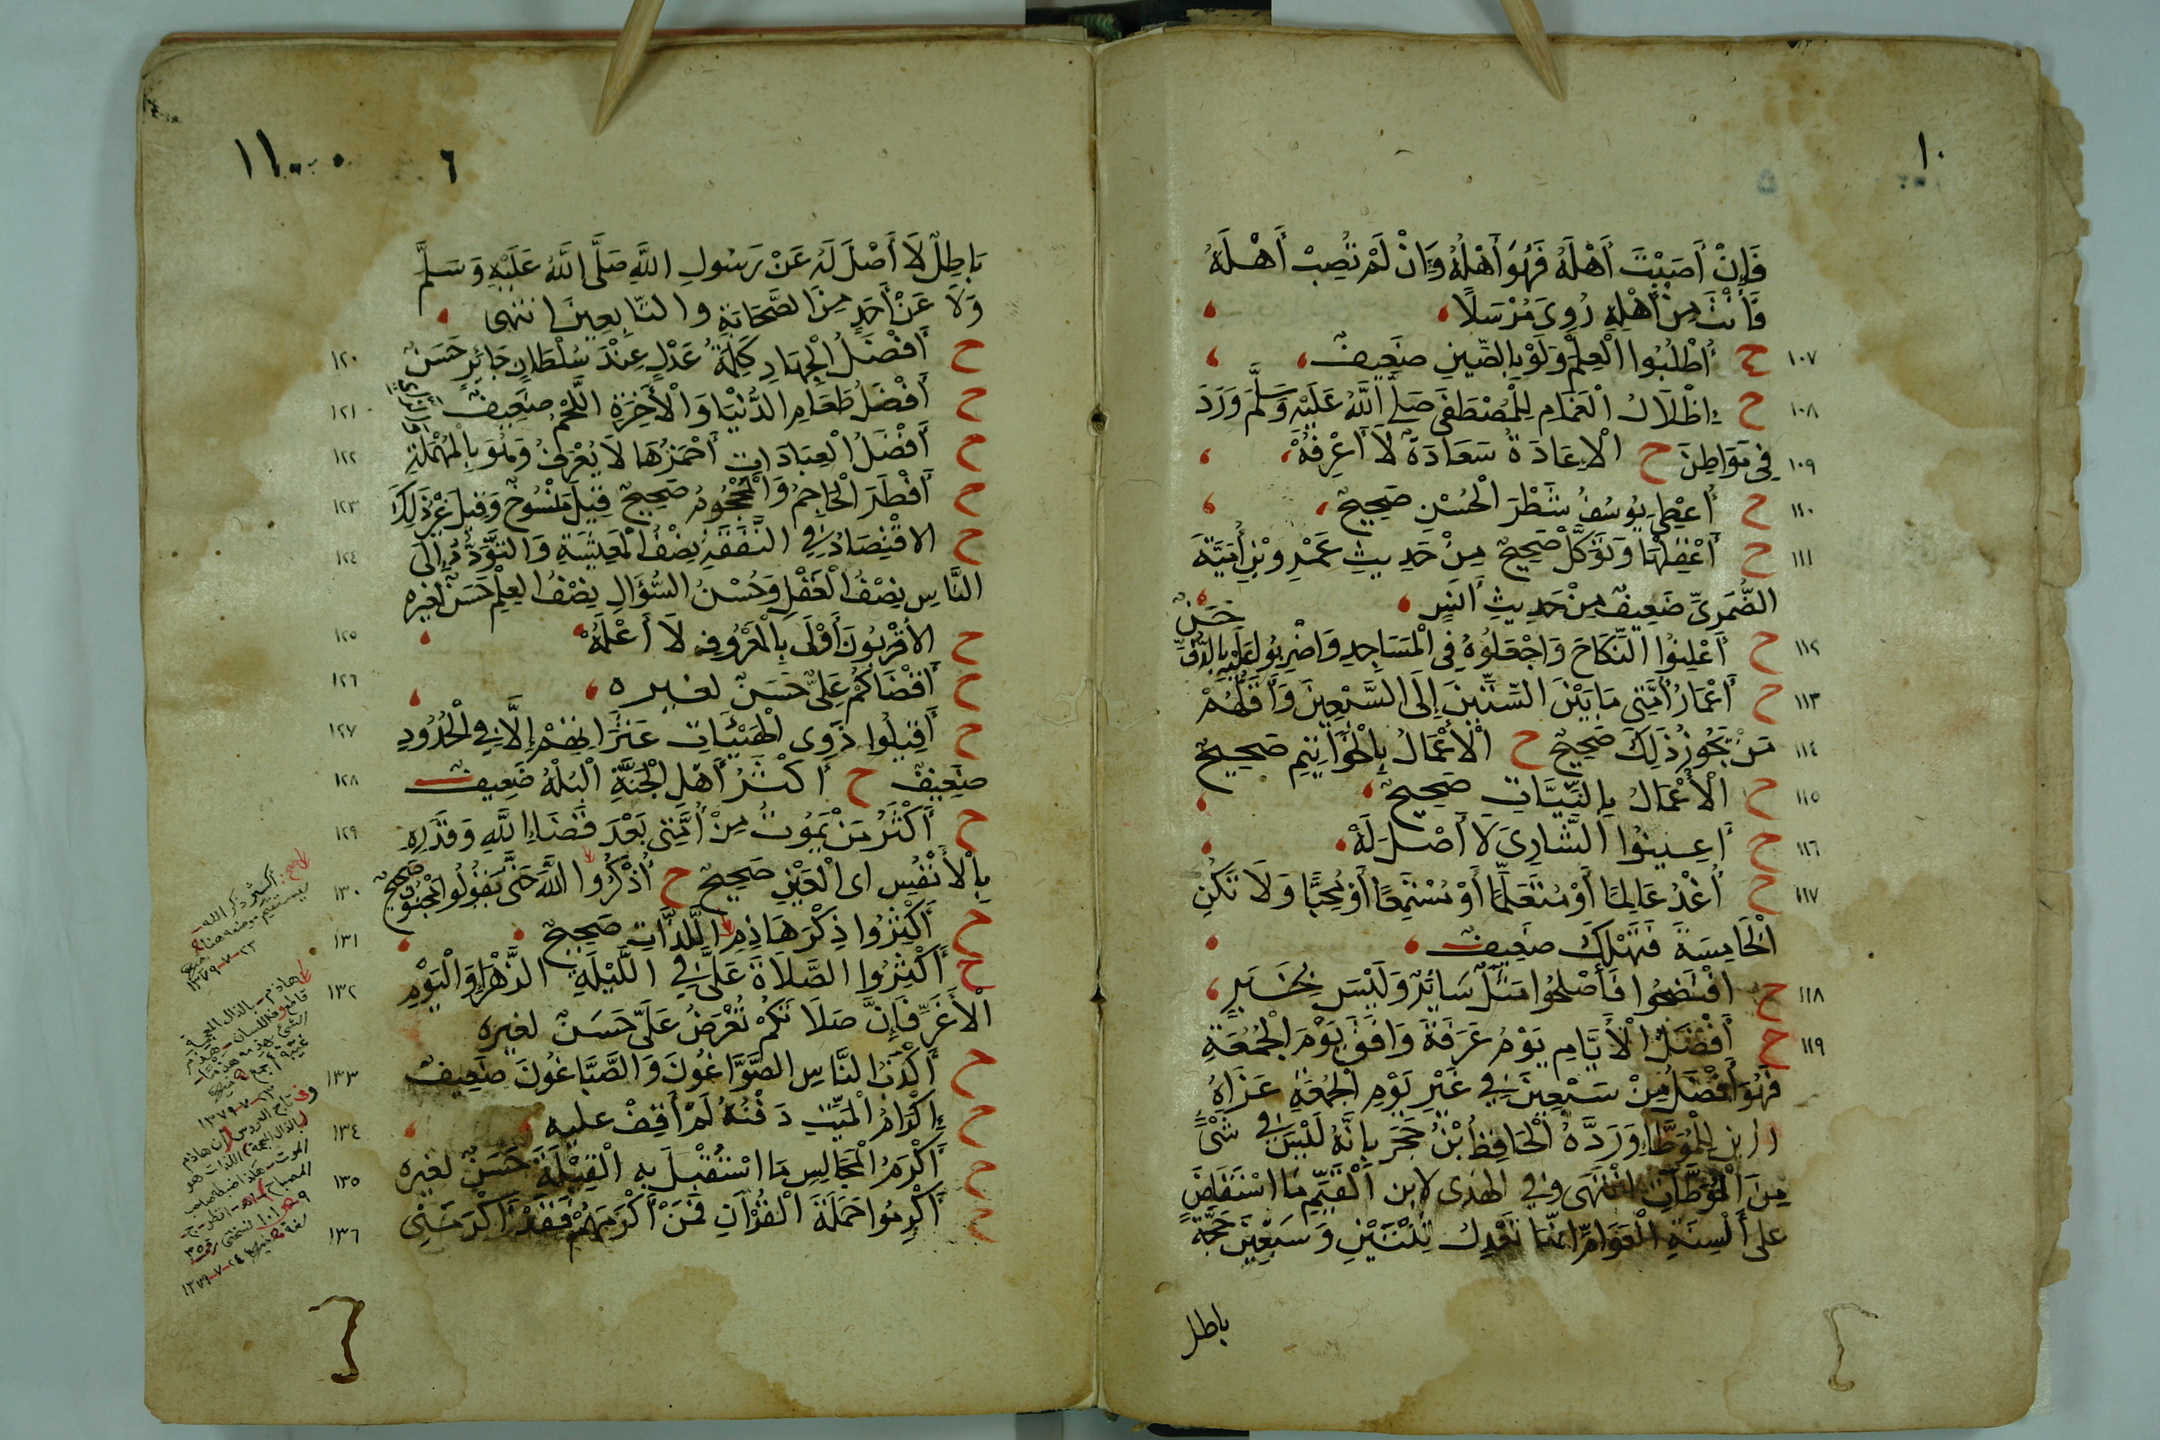 ١٠
فَإِنْ أَصَبْتَ أَهْلَهُ فَهُوَ أَهْلُهُ وَإِنْ لَمْ تُصِبْ أَهْلَهُ
فَأَنْتَ مِنْ أَهْلِهِ رُوِيَ مُرْسَلًا
١٠٧ ح أُطْلُبُوا الْعِلْمَ وَلَوْ بِالصِّينِ ضَعِيفٌ
١٠٨ ح إِظْلَالُ الْغَمَامِ لِلْمُصْطَفَى صَلَّى اللَّهُ عَلَيْهِ وَسَلَّمَ وَرَدَ
١٠٩ فِي مَوَاطِنَ ح الْإِعَادَةُ سَعَادَةٌ لَا أَعْرِفُهُ
١١٠ ح أُعْطِيَ يُوسُفُ شَطْرَ الْحُسْنِ صَحِيحٌ
١١١ ح أَعْقِلْهَا وَتَوَكَّلْ صَحِيحٌ مِنْ حَدِيثِ عَمْرِو بْنِ أُمَيَّةَ
الضَّمْرِيِّ ضَعِيفٌ مِنْ حَدِيثِ أَنَسٍ
حَسَنٌ
١١٢ ح أَعْلِنُوا النِّكَاحَ وَاجْعَلُوهُ فِي الْمَسَاجِدِ وَاضْرِبُوا عَلَيْهِ بِالدُّفِّ
١١٣ ح أَعْمَارُ أُمَّتِي مَا بَيْنَ السِّتِّينَ إِلَى السَّبْعِينَ وَأَقَلُّهُمْ
١١٤ مَنْ يَجُوزُ ذَلِكَ صَحِيحٌ ح الْأَعْمَالُ بِالْخَوَاتِيمِ صَحِيحٌ
١١٥ ح الْأَعْمَالُ بِالنِّيَّاتِ صَحِيحٌ
١١٦ ح أَعِينُوا الشَّارِيَ لَا أَصْلَ لَهُ
١١٧ ح أُغْدُ عَالِمًا أَوْ مُتَعَلِّمًا أَوْ مُسْتَمِعًا أَوْ مُحِبًّا وَلَا تَكُنِ
الْخَامِسَةَ فَتَهْلِكَ ضَعِيفٌ
١١٨ ح افْتَضِحُوا فَأَصْلِحُوا مَثَلٌ سَائِرٌ وَلَيْسَ بِخَبَرٍ
١١٩ ح أَفْضَلُ الْأَيَّامِ يَوْمُ عَرَفَةَ وَافَقَ يَوْمَ الْجُمُعَةِ
فَهُوَ أَفْضَلُ مِنْ سَبْعِينَ فِي غَيْرِ يَوْمِ الْجُمُعَةِ عَزَاهُ
رزين لِلْمُوَطَّإِ وَرَدَّهُ الْحَافِظُ ابْنُ حَجَرَ بِأَنَّهُ لَيْسَ فِي شَيْءٍ
مِنَ الْمُوَطَّآتِ انْتَهَى وَفِي الهدى لِابْنِ الْقَيِّمِ مَا اسْتَفَاضَ
على أَلْسِنَةِ الْعَوَامِّ أنَّهَا تَعْدِلُ ثِنْتَيْنِ وَسَبْعِينَ حَجَّةً
باطل
١١ ٦
بَاطِلٌ لَا أَصْلَ لَهُ عَنْ رَسُولِ اللَّهِ صَلَّى اللَّهُ عَلَيْهِ وَسَلَّمَ
وَلَا عَنْ أَحَدٍ مِنَ الصَّحَابَةِ وَالتَّابِعِينَ انتهى
١٢٠ ح أَفْضَلُ الْجِهَادِ كَلِمَةُ عَدْلٍ عِنْدَ سُلْطَانٍ جَائِرٍ حَسَنٌ
١٢١ ح أَفْضَلُ طَعَامِ الدُّنْيَا وَالْأَخِرَةِ اللَّحْمُ ضَعِيفٌ
١٢٢ ح أَفْضَلُ الْعِبَادَاتِ أَحْمَزُهَا لَا يُعْرَفُ وَهُوَ بِالْمُهْمَلَةِ
١٢٣ ح أَفْطَرَ الْحَاجِمُ وَالْمَحْجُومُ صَحِيحٌ قِيلَ مَنْسُوخٌ وَقِيلَ غَيْرُ ذَلِكَ
١٢٤ ح الاقْتِصَادُ فِي النَّفَقَةِ نِصْفُ الْمَعِيشَةِ وَالتَّوَدُّدُ إِلَى
النَّاسِ نِصْفُ الْعَقْلِ وَحُسْنُ السُّؤَالِ نِصْفُ الْعِلْمِ حَسَنٌ لغيره
١٢٥ ح الْأَقْرَبُونَ أَوْلَى بِالْمَعْرُوفِ لَا أَعْلَمُهُ
١٢٦ ح أَقْضَاكُمْ عَلِيٌّ حَسَنٌ لغيره
١٢٧ ح أَقِيلُوا ذَوِي الْهَيْئَاتِ عَثَرَاتِهِمْ إِلَّا فِي الْحُدُودِ
١٢٨ ضَعِيفٌ ح أَكْثَرُ أَهْلِ الْجَنَّةِ الْبُلْهُ ضَعِيفٌ
١٢٩ ح أَكْثَرُ مَنْ يَمُوتُ مِنْ أُمَّتِي بَعْدَ قَضَاءِ اللَّهِ وَقَدَرِهِ
١٣٠ بِالْأَنْفُسِ اى الْعَيْنِ صَحِيحٌ ح أُذْكُرُوا اللَّهَ حَتَّى يَقُولُوا مَجْنُونٌ صَحِيحٌ
١٣١ ح أَكْثِرُوا ذِكْرَ هَاذِمِ اللَّذَّاتِ صَحِيحٌ
١٣٢ ح أَكْثِرُوا الصَّلَاةَ عَلَيَّ فِي اللَّيْلَةِ الزَّهْرَاءِ وَالْيَوْمِ
الْأَغَرِّ فَإِنَّ صَلَاتَكُمْ تُعْرَضُ عَلَيَّ حَسَنٌ لغيره
١٣٣ ح أَكْذَبُ النَّاسِ الصَّوَّاغُونَ وَالصَّبَّاغُونَ ضَعِيفٌ
١٣٤ ح إِكْرَامُ الْمَيِّتِ دَفْنُهُ لَمْ أَقِفْ عليه
١٣٥ ح أَكْرَمُ الْمَجَالِسِ مَا اسْتُقْبِلَ بِهِ الْقِبْلَةُ حَسَنٌ لغيره
١٣٦ ح أَكْرِمُوا حَمَلَةَ الْقُرْآنِ فَمَنْ أَكْرَمَهُمْ فَقَدْ أَكْرَمَنِي